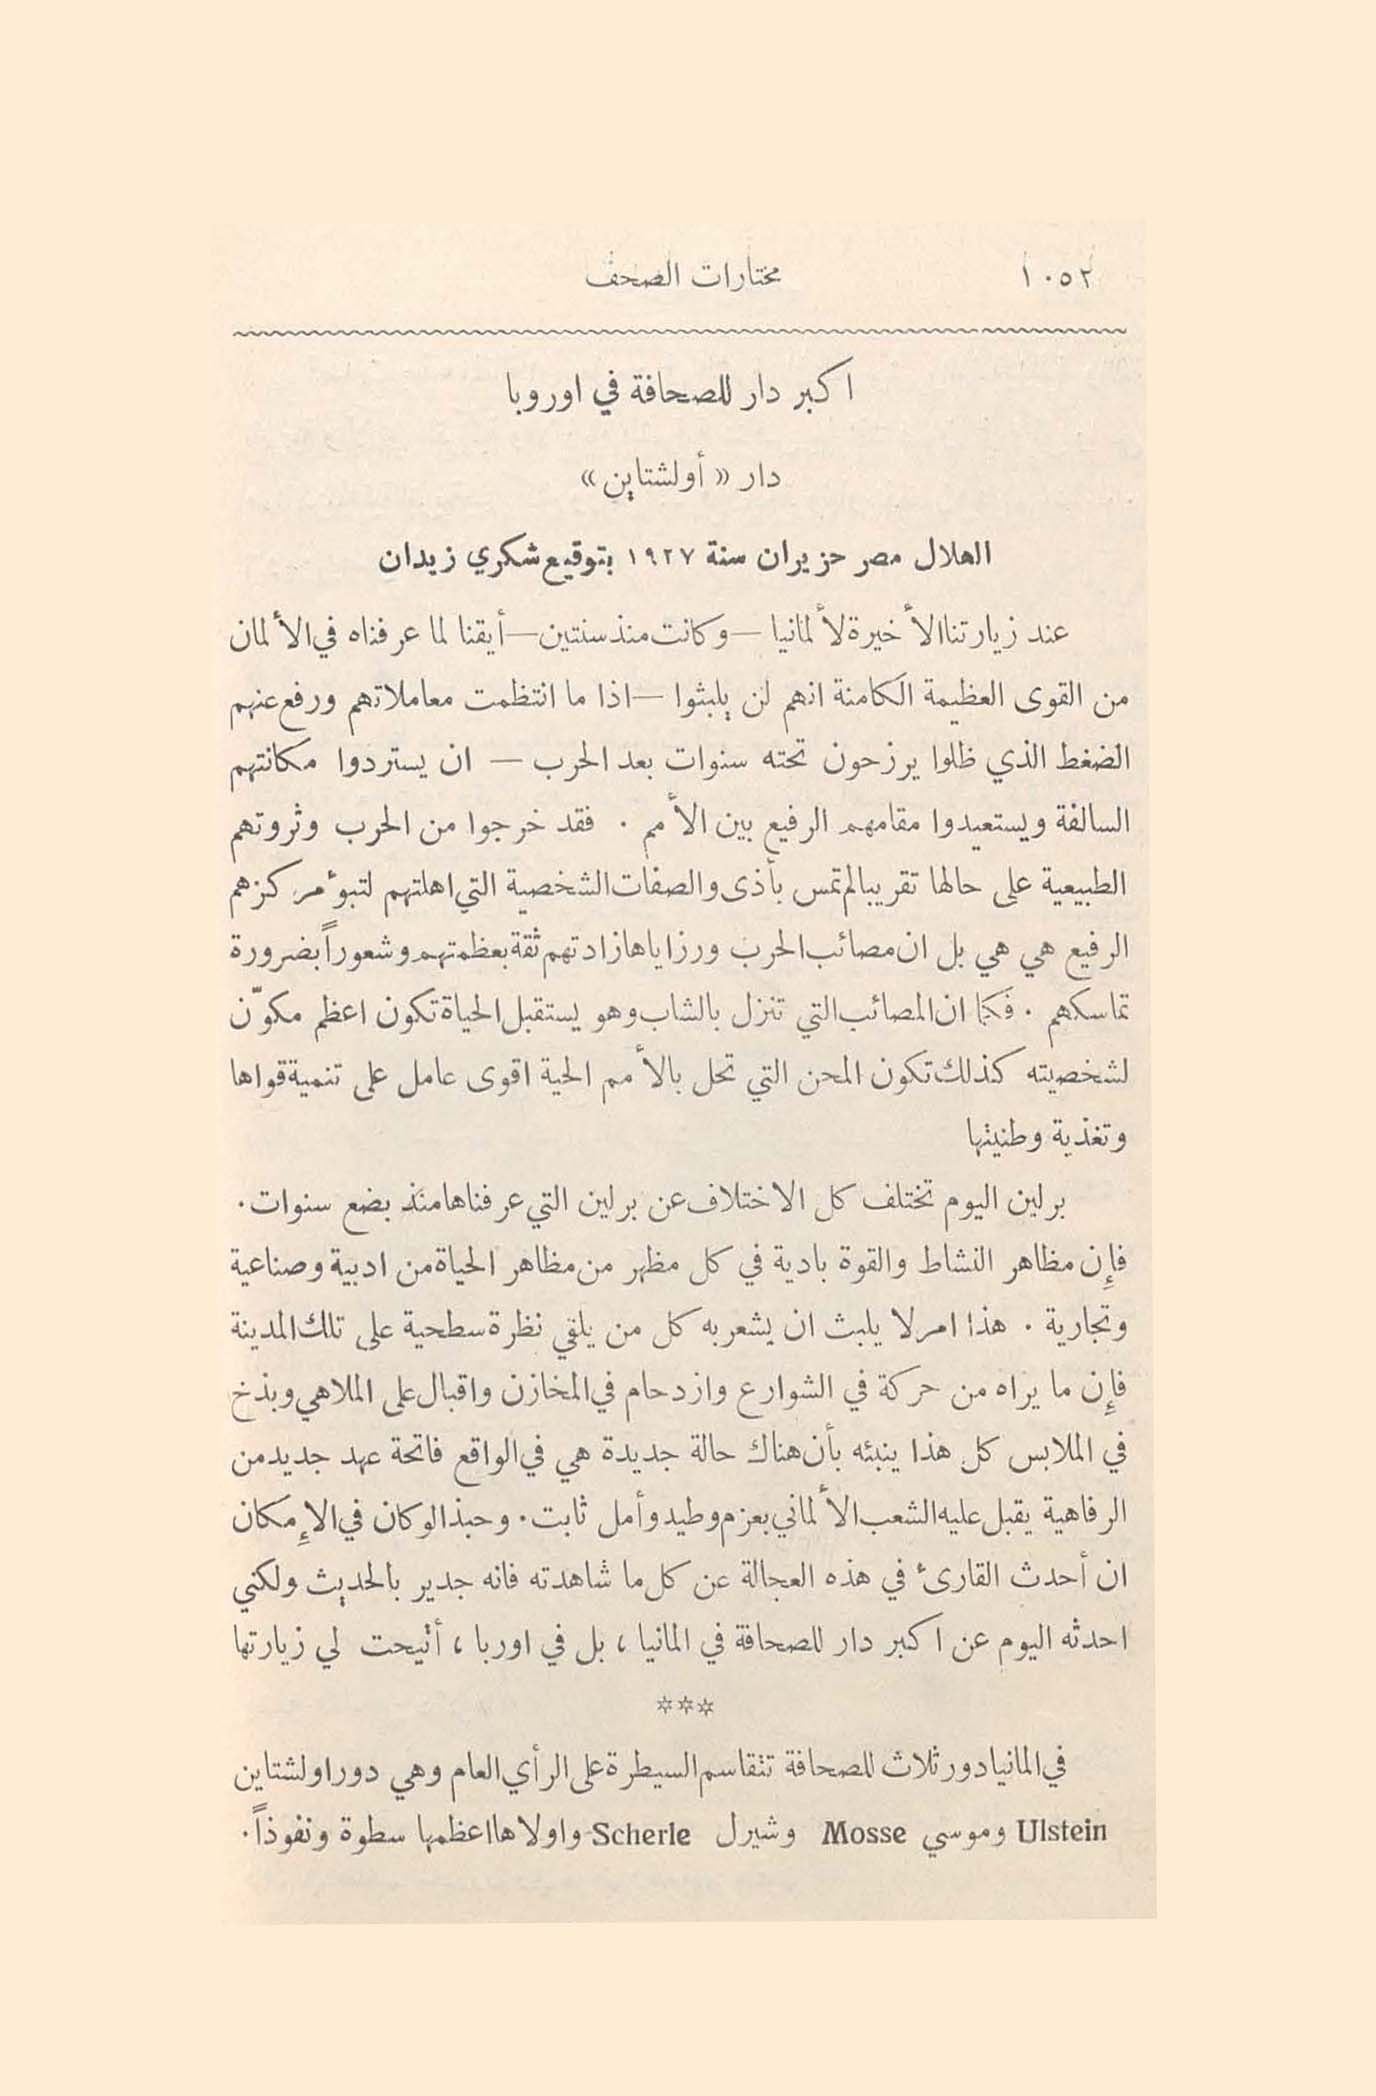 ١٠٥٢ مختارات الصحف
اكبر دار للصحافة في اوروبا
دار « أولشتاين »
الهلال مصر حزيران سنة ١٩٢٧ بتوقيع شكري زيدان
عند زيارتنا الأخيرة لألمانيا — وكانت منذ سنتين — أيقنا لما عرفناه في الألمان
من القوى العظيمة الكامنة انهم لن يلبثوا — اذا ما انتظمت معاملاتهم ورفع عنهم
الضغط الذي ظلوا يرزحون تحته سنوات بعد الحرب — ان يستردوا مكانتهم
السالفة ويستعيدوا مقامهم الرفيع بين الأمم . فقد خرجوا من الحرب وثروتهم
الطبيعية على حالها تقريبا لم تمس بأذى والصفات الشخصية التي اهلتهم لتبوء مركزهم
الرفيع هي هي بل ان مصائب الحرب ورزاياها زادتهم ثقة بعظمتهم وشعوراً بضرورة
تماسكهم . فكما ان المصائب التي تنزل بالشاب وهو يستقبل الحياة تكون اعظم مكوّن
لشخصيته كذلك تكون المحن التي تحل بالأمم الحية اقوى عامل على تنمية قواها
وتغذية وطنيتها
برلين اليوم تختلف كل الاختلاف عن برلين التي عرفناها منذ بضع سنوات .
فإن مظاهر النشاط والقوة بادية في كل مظهر من مظاهر الحياة من ادبية وصناعية
وتجارية . هذا امر لا يلبث ان يشعر به كل من يلقي نظرة سطحية على تلك المدينة
فإن ما يراه من حركة في الشوارع وازدحام في المخازن واقبال على الملاهي وبذخ
في الملابس كل هذا ينبئه بأن هناك حالة جديدة هي في الواقع فاتحة عهد جديد من
الرفاهية يقبل عليه الشعب الألماني بعزم وطيد وأمل ثابت . وحبذا لو كان في الإمكان
ان أحدث القارئ في هذه العجالة عن كل ما شاهدته فانه جدير بالحديث ولكني
احدثه اليوم عن اكبر دار للصحافة في المانيا ، بل في اوربا ، أتيحت لي زيارتها
***
في المانيا دور ثلاث للصحافة تتقاسم السيطرة على الرأي العام وهي دور اولشتاين
Ulstein وموسي Mosse وشيرل Scherle واولاها اعظمها سطوة ونفوذاً .